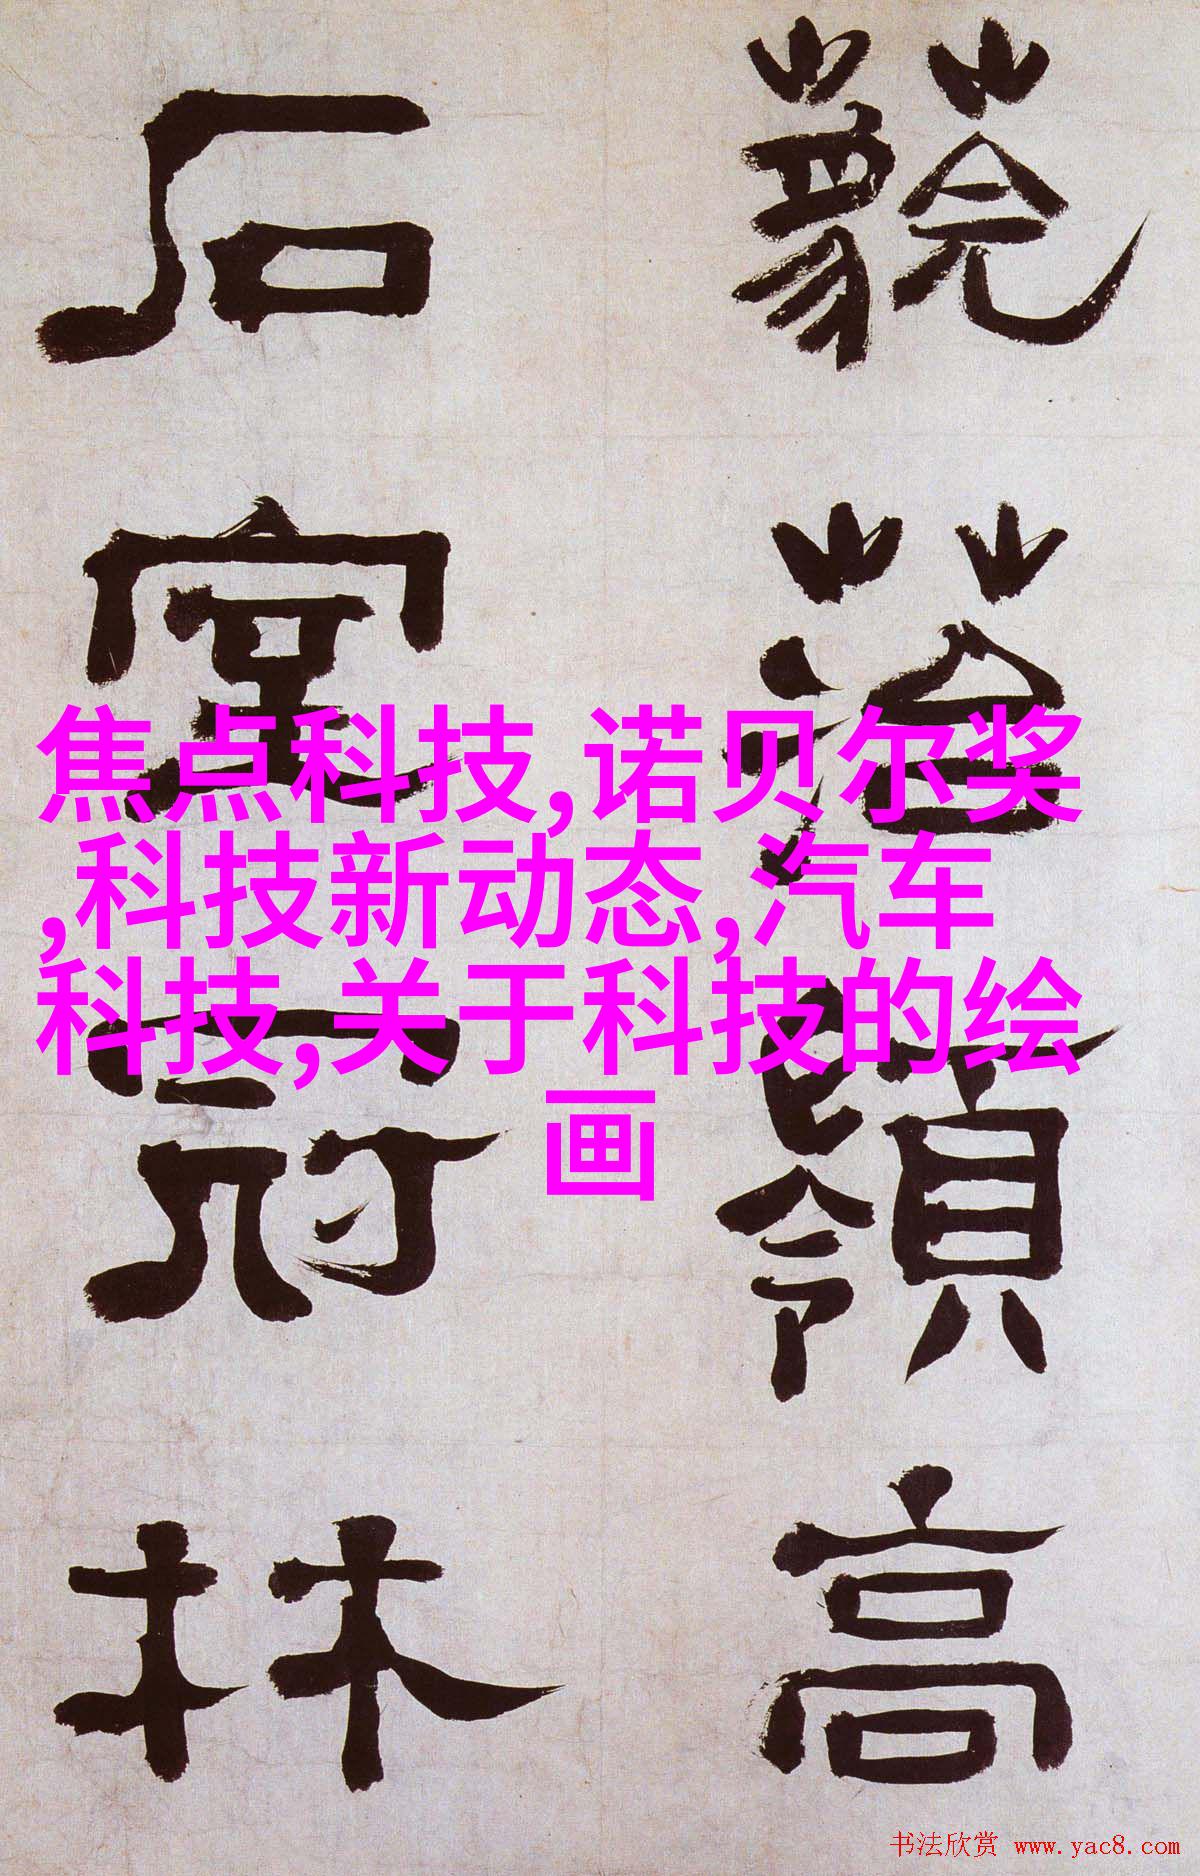 嶺高
石室冠林
焦点科技,诺贝尔奖
,科技新动态,汽车
科技,关于科技的绘
画
书法欣赏 www.yac8.com